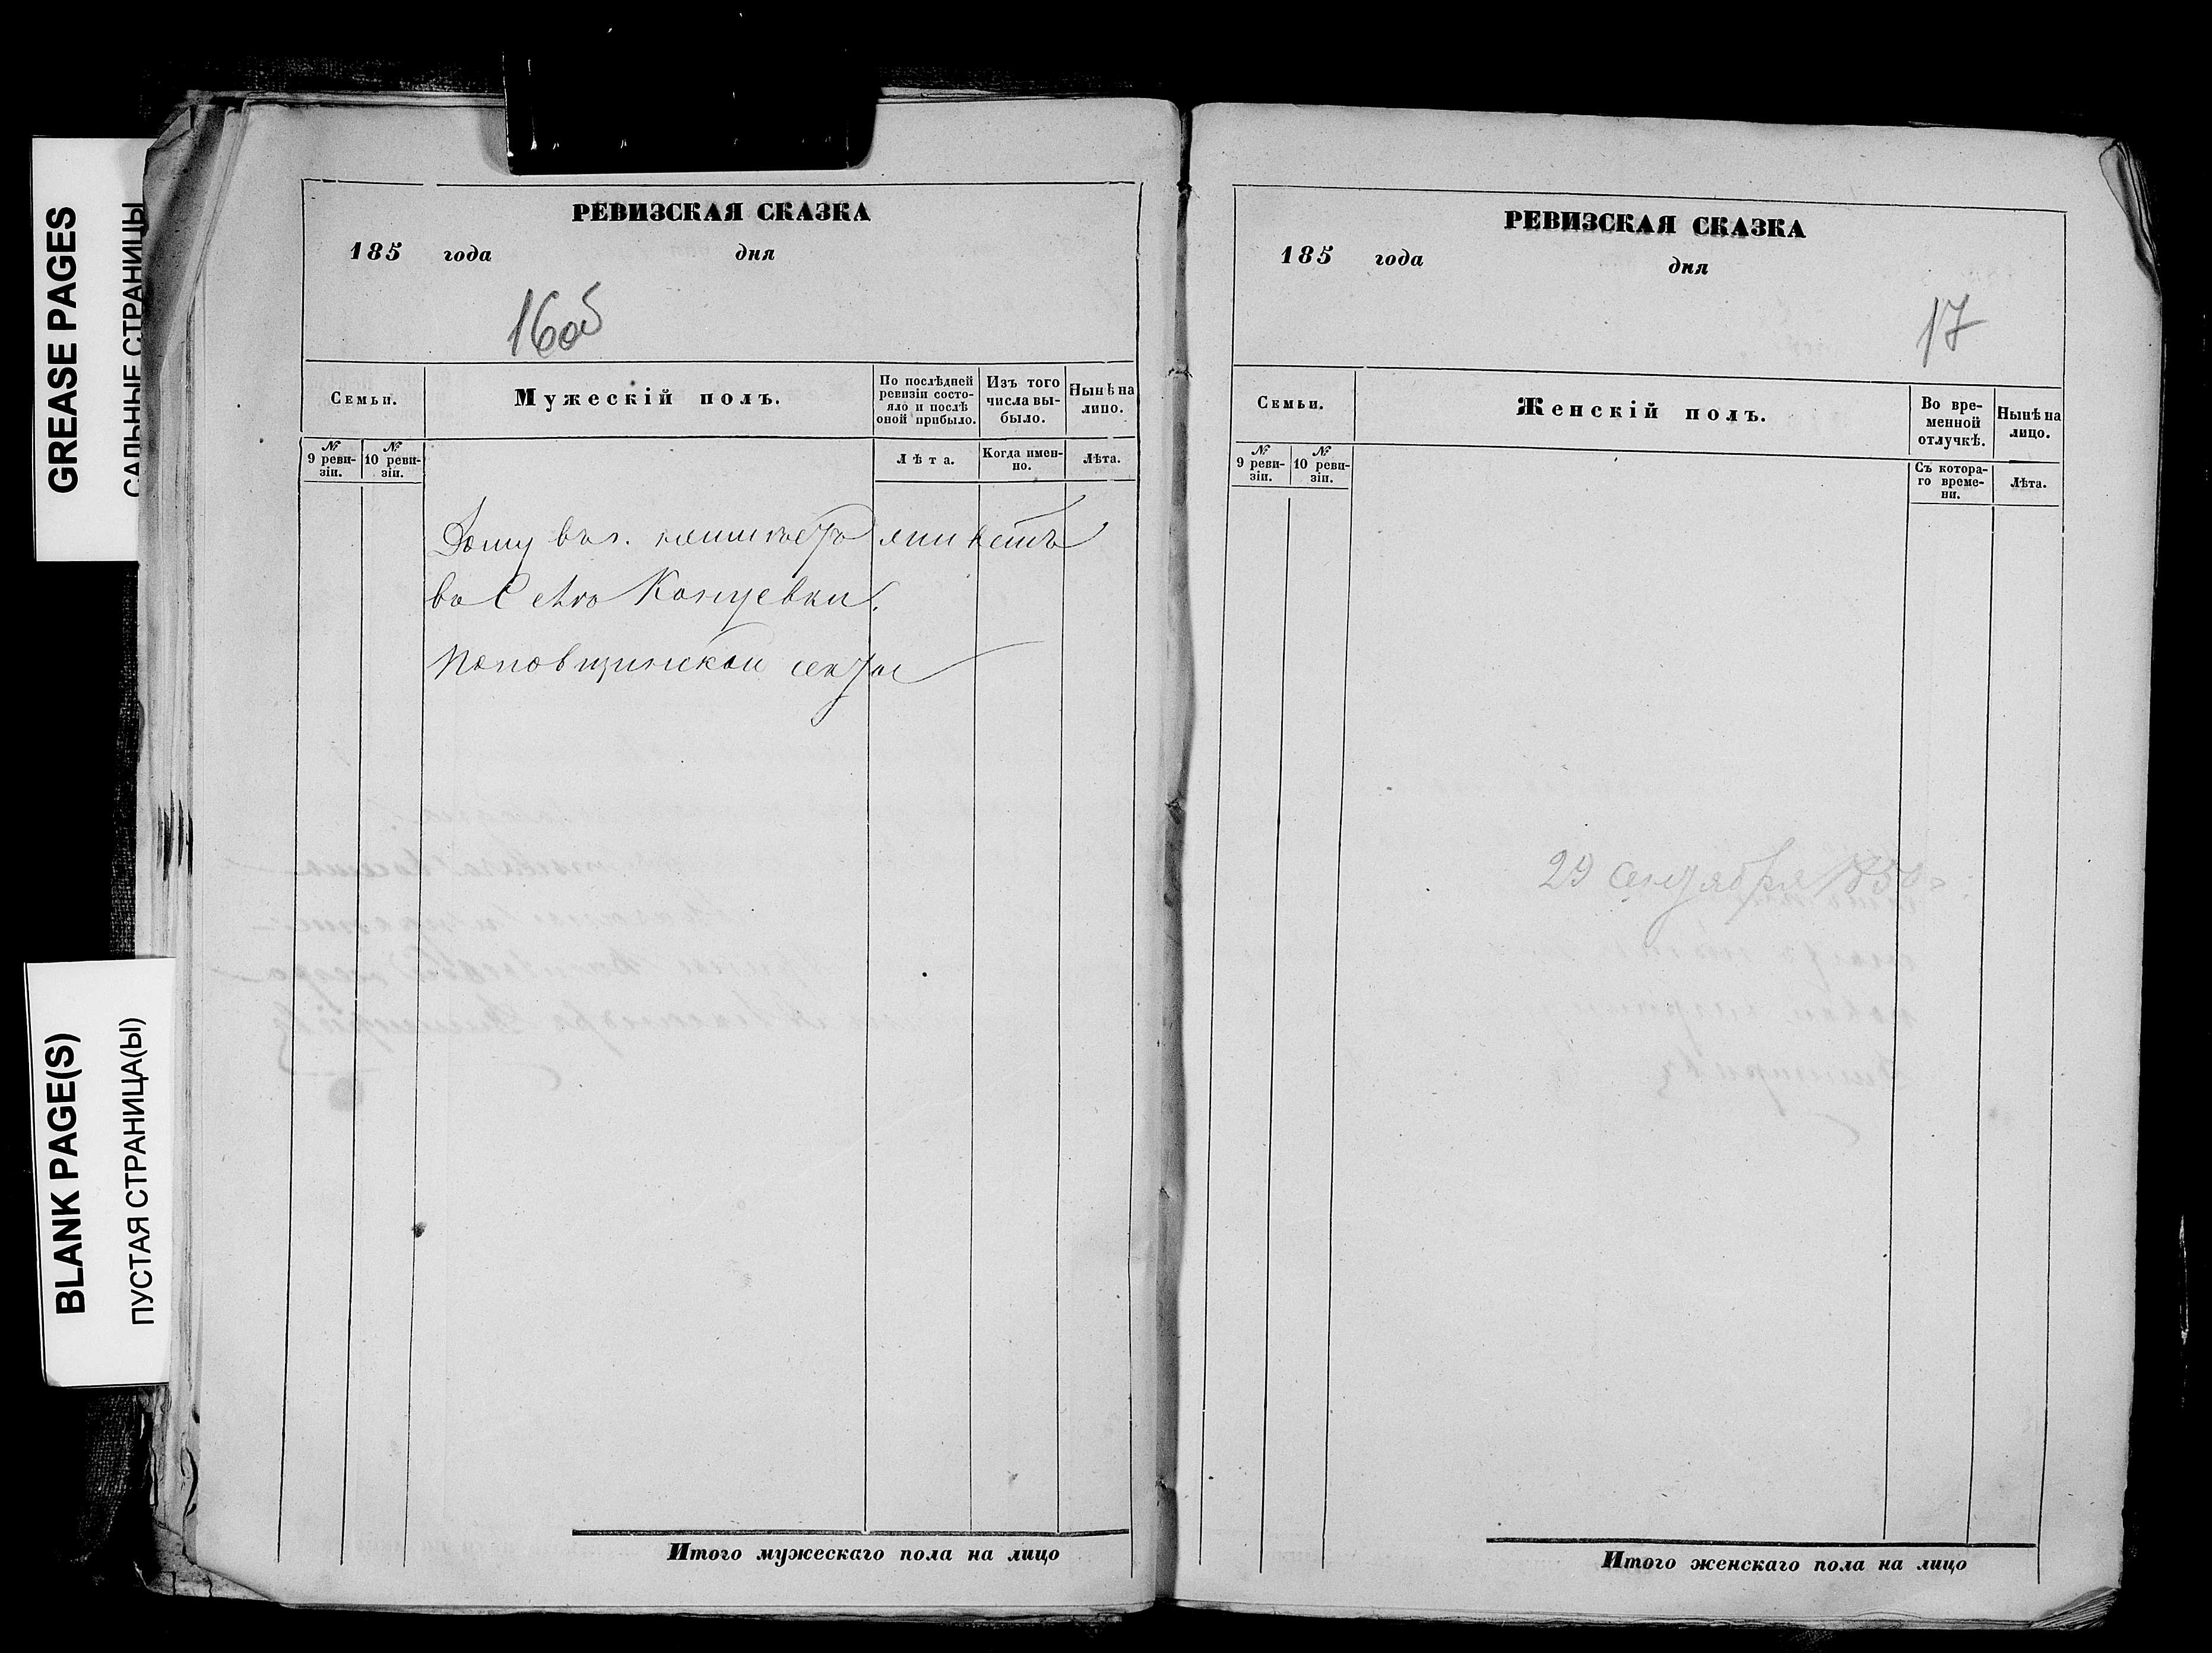 GREASE PAGES
САЛЬНЫЕ СТРАНИЦЫ
BLANK PAGE(S)
ПУСТАЯ СТРАНИЦА(Ы)
РЕВИЗСКАЯ СКАЗКА
185 года дня
16об
Семьи.
Мужескій полъ.
По послѣдней
ревизіи состо-
яло и послѣ
оной прибыло.
Изъ того
числа вы-
было.
Нынѣ на
лицо.
№
9 реви-
зіи.
№
10 реви-
зіи.
Лѣта.
Когда имен-
но.
Лѣта.
въ
Поповщинской секты
Итого мужескаго пола на лицо
РЕВИЗСКАЯ СКАЗКА
185 года дня
17
Семьи.
Женскій полъ.
Во вре-
менной
отлучкѣ.
Нынѣ на
лицо.
№
9 реви-
зіи.
№
10 реви-
зіи.
Съ котора-
го време-
ни.
Лѣта.
29 сентября
Итого женскаго пола на лицо